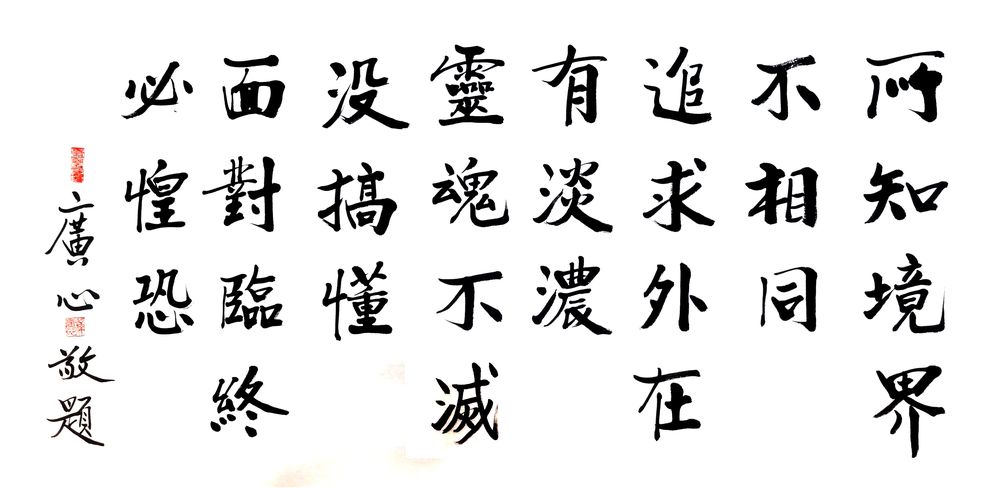 所知境界
不相同
追求外在
有淡濃
靈魂不滅
没搞懂
面對臨終
必惶恐
廣心敬題